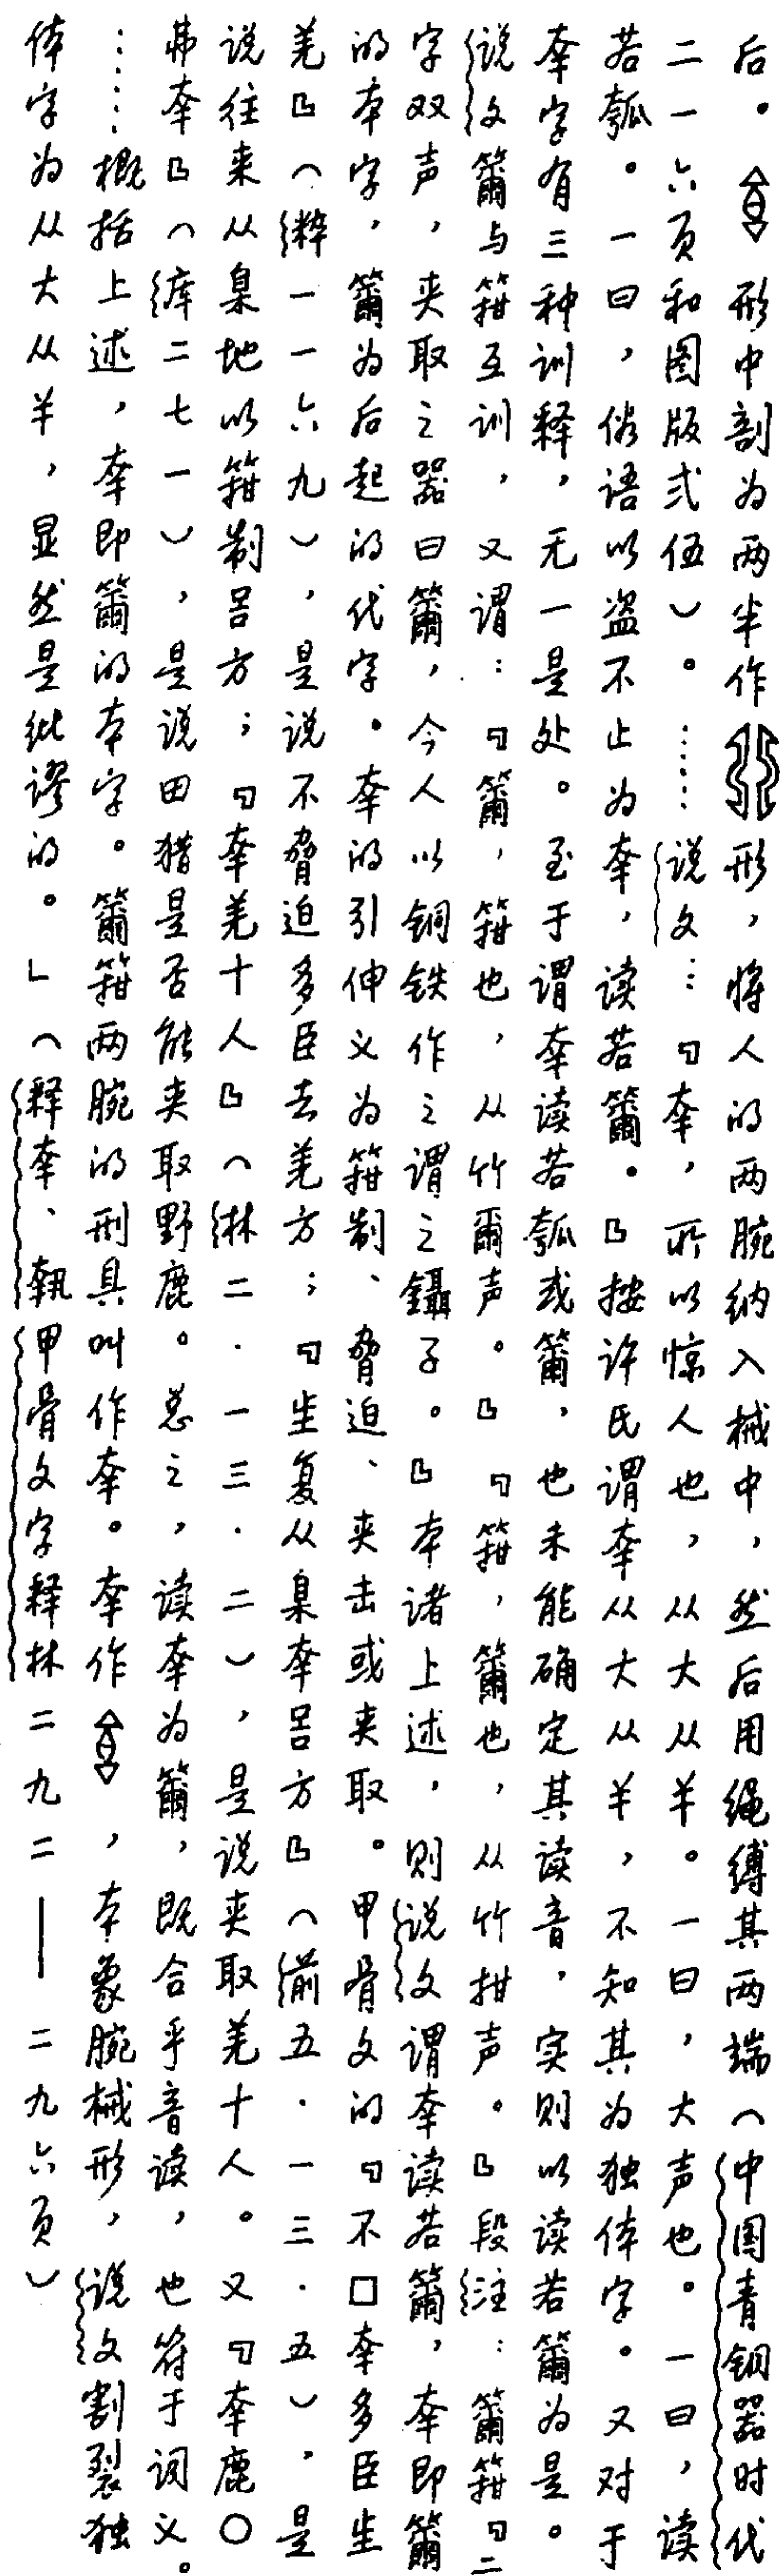 后。形中剖为两半作形，将人的两腕纳入械中，然后用绳缚其两端（中国青铜器时代
二一六页和图版弍伍）。……说文：「㚔，所以惊人也，从大从𢆉。一曰，大声也。一曰，读
若瓠。一曰，俗语以盗不止为㚔，读若籋。」按许氏谓㚔从大从𢆉，不知其为独体字。又对于
㚔字有三种训释，无一是处。至于谓㚔读若瓠或籋，也未能确定其读音，实则以读若籋为是。
说文籋与箝互训，又谓：「籋，箝也，从竹爾声。」「箝，籋也，从竹拑声。」段注：籋箝「二
字双声，夹取之器曰籋，今人以铜铁作之谓之鑷子。」本诸上述，则说文谓㚔读若籋，㚔即籋
的本字，籋为后起的代字。㚔的引伸义为箝制、胁迫、夹击或夹取。甲骨文的「不□㚔多臣㞢
羌」（粹一一六九），是说不胁迫多臣去羌方；「㞢复从臬㚔𠮯方」（前五·一三·五），是
说往来从臬地以箝制𠮯方；「㚔羌十人」（林二·一三·二），是说夹取羌十人。又「㚔鹿〇
弗㚔」（库二七一），是说田猎是否能夹取野鹿。总之，读㚔为籋，既合乎音读，也符于词义。
……概括上述，㚔即籋的本字。籋箝两腕的刑具叫作㚔。㚔作，本象腕械形，说文割裂独
体字为从大从𢆉，显然是纰谬的。」（释㚔、執甲骨文字释林二九二——二九六页）